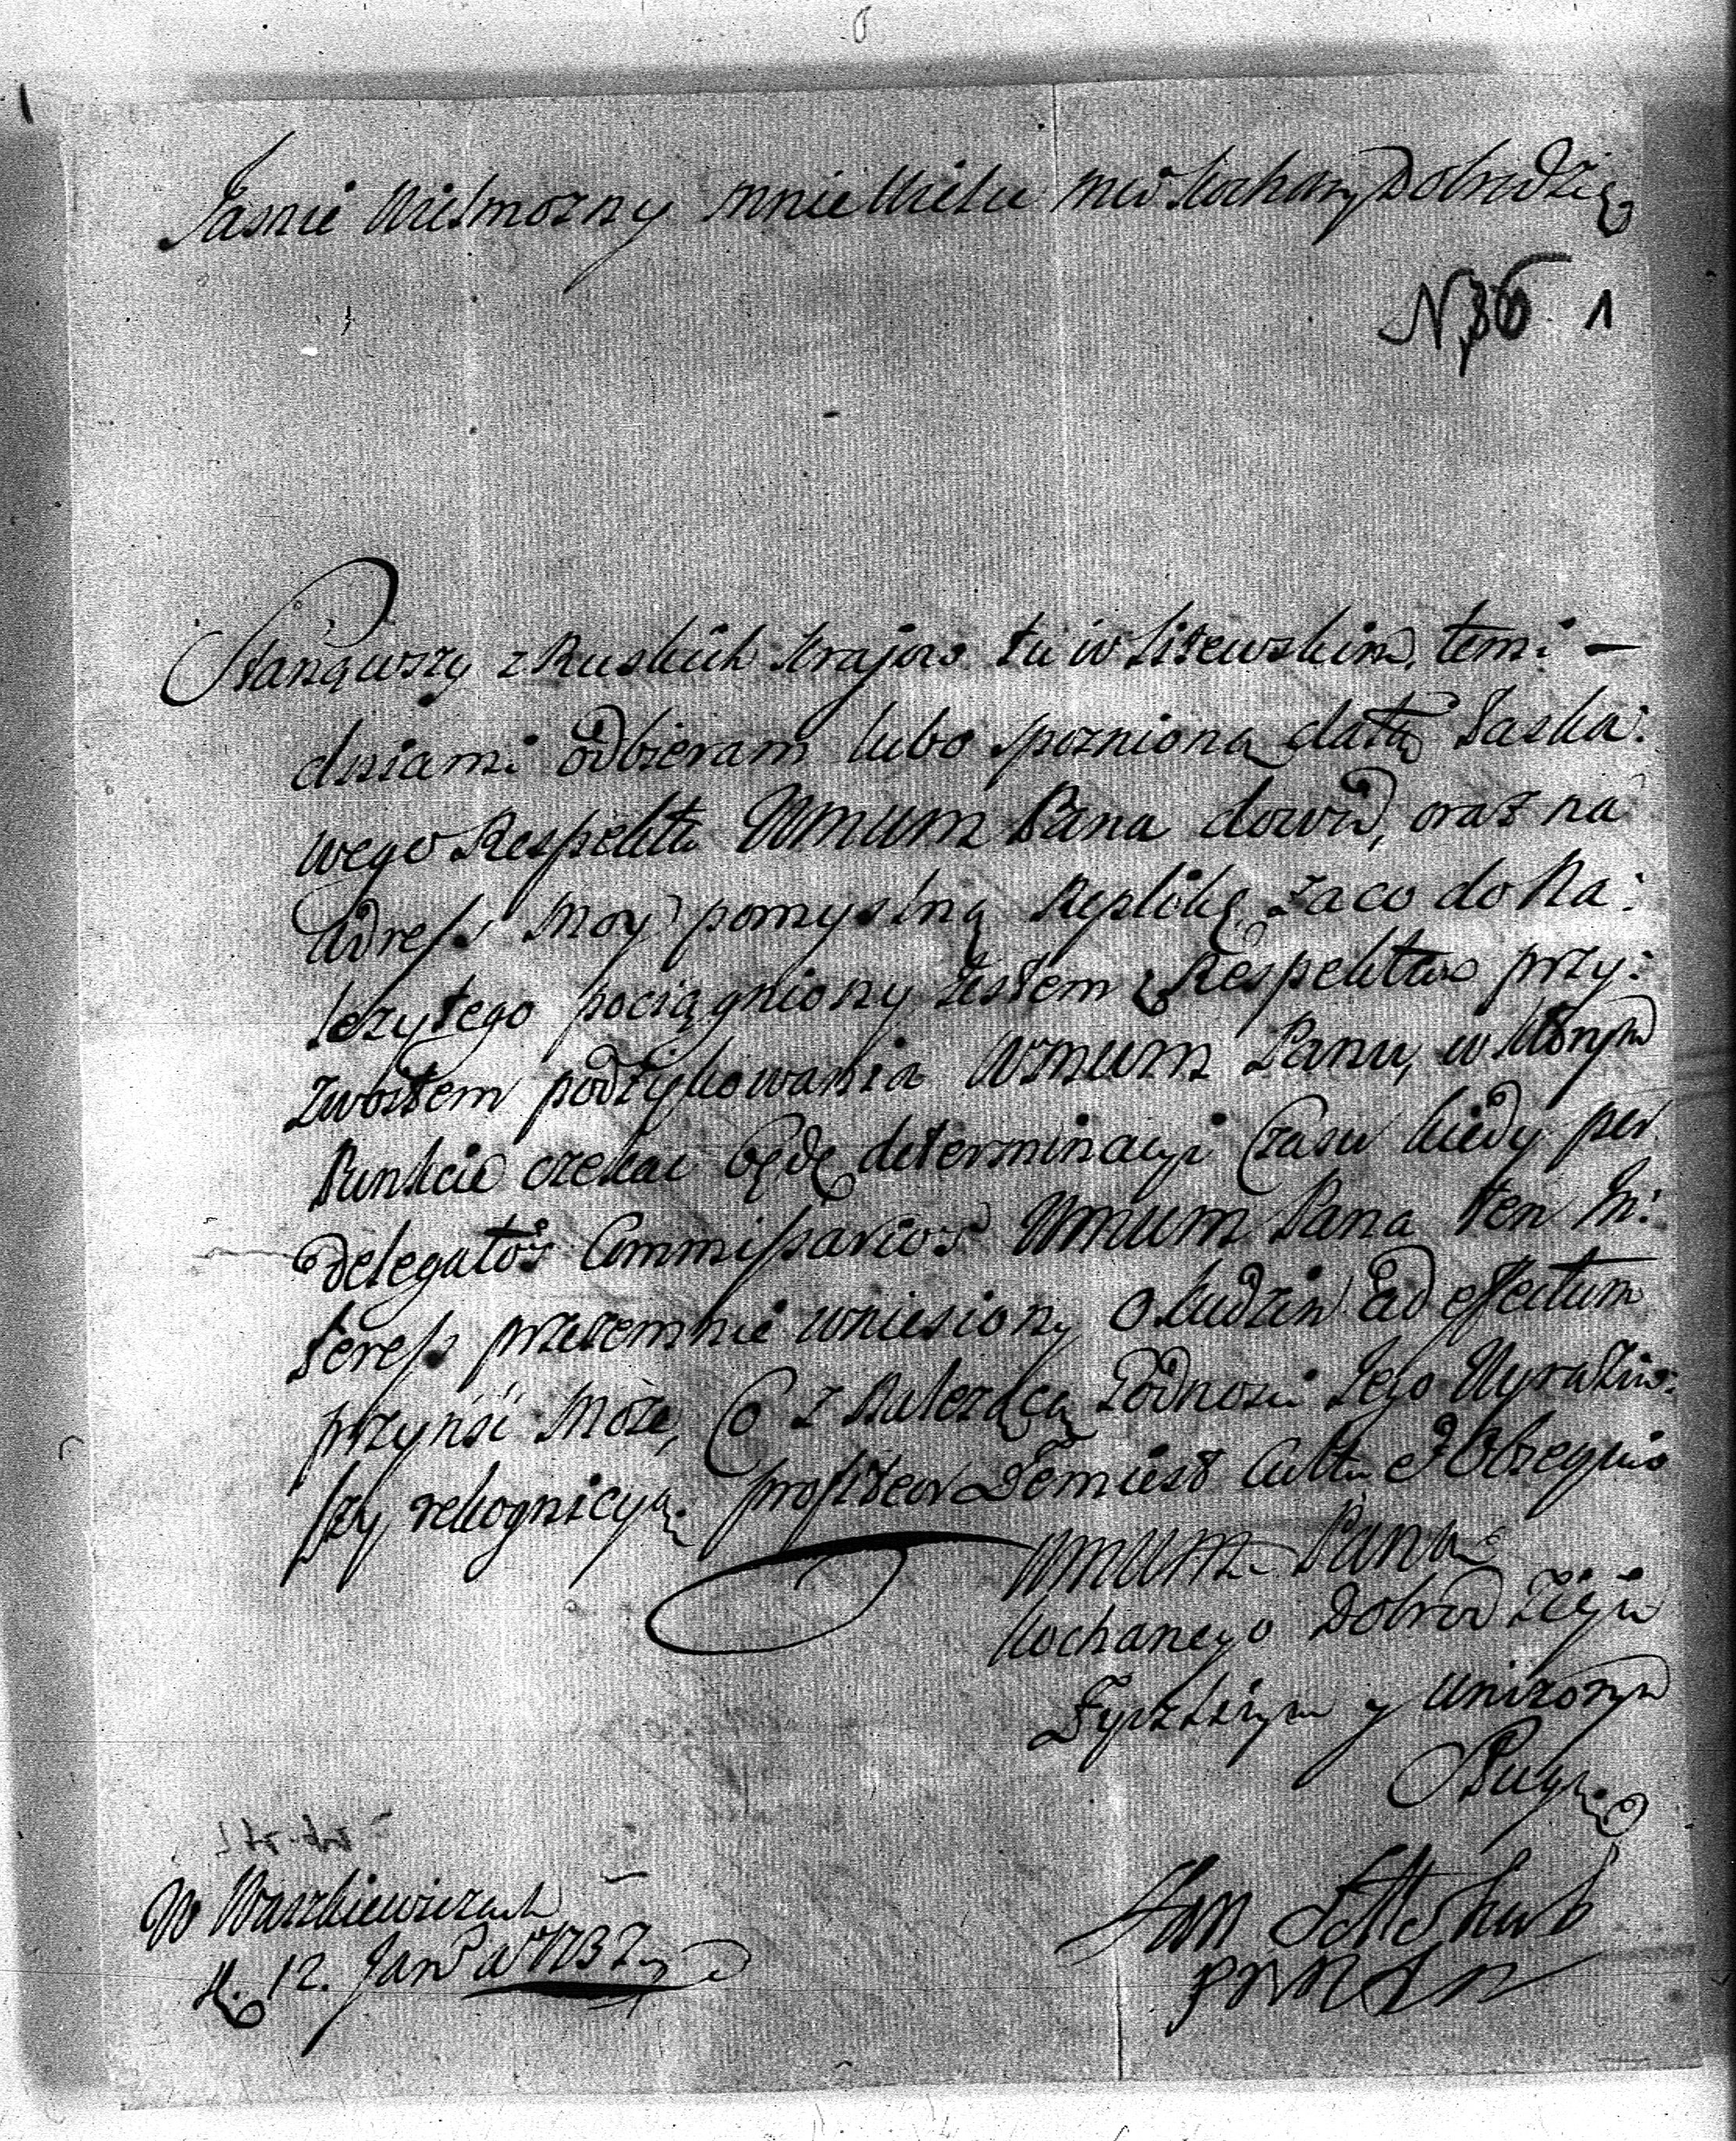 Jasnie Wielmozny mnie Wielce mw Kochany Dobrodzieiu
N 36 1
Stanąwszy z Ruskich Krajow tu w Litewskim, temi
dniami odbieram lubo spoznioną datą Łaska:
wego Respektu WMUM Pana dowod, oraz na
Adress moy pomyslną Replikę, za co do Na:
lezytego pociągniony iestem z Respektow przy:
zwoitem podziękowania WMUM Panu, w ktorym
Punkcie czekac będę determinacyi Czasu kiedy per
Delegatos Commissarios WMUM Pana ten In:
teress przezemnie wniesiony o ludzi ad effectum
przynsć może, Co z Należącą Godnosci Jego Wyraziw:
szy rekognicyą, profiteor iestem Cultu et Obsequio
WMUM Pana
Kochanego Dobrodzieja
Zyczliwym y unizonym
Sługą
Jan
W Waszkiewiczach
d. 12. Jan 1732